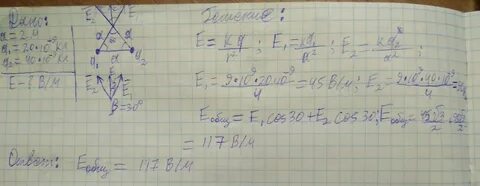 Дано:
a = 2 м
q₁ = 20·10⁻⁹ Кл
q₂ = 40·10⁻⁹ Кл
E - ? В/м
E₂ E₁
a a
q₁ a q₂
E₂ E₁
β = 30°
Решение:
E = kq/r²; E₁ = kq₁/a²; E₂ = kq₂/a²;
E₁ = 9·10⁹·20·10⁻⁹/4 = 45 В/м; E₂ = 9·10⁹·40·10⁻⁹/4
Eобщ = E₁ cos30 + E₂ cos30; Eобщ =
= 117 В/м
Ответ: Eобщ = 117 В/м